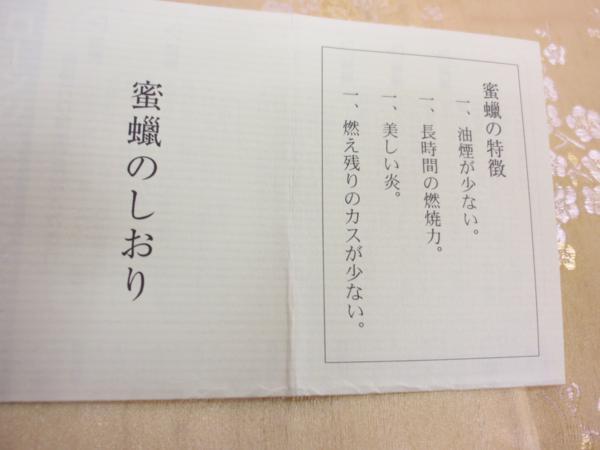 蜜蠟の特徴
一、油煙が少ない。
一、長時間の燃焼力。
一、美しい炎。
一、燃え残りのカスが少ない。
蜜蠟のしおり